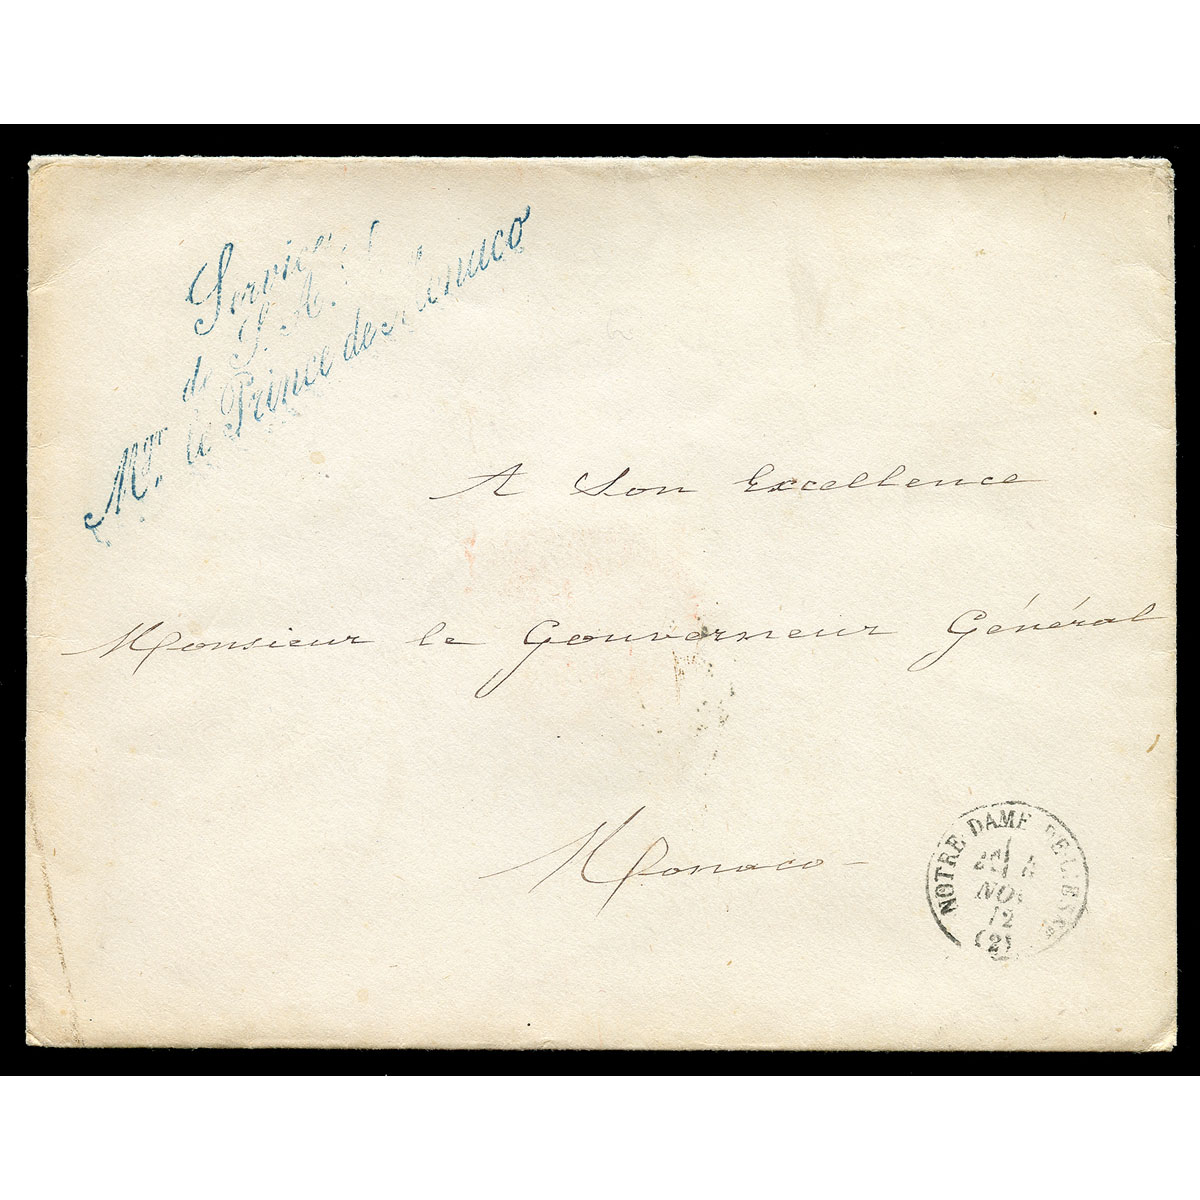 Service
de S. A. S.
Mgr. le Prince de Monaco
A Son Excellence
Monsieur le Gouverneur Général
Monaco
NOTRE DAME DE
NO
12
(2)